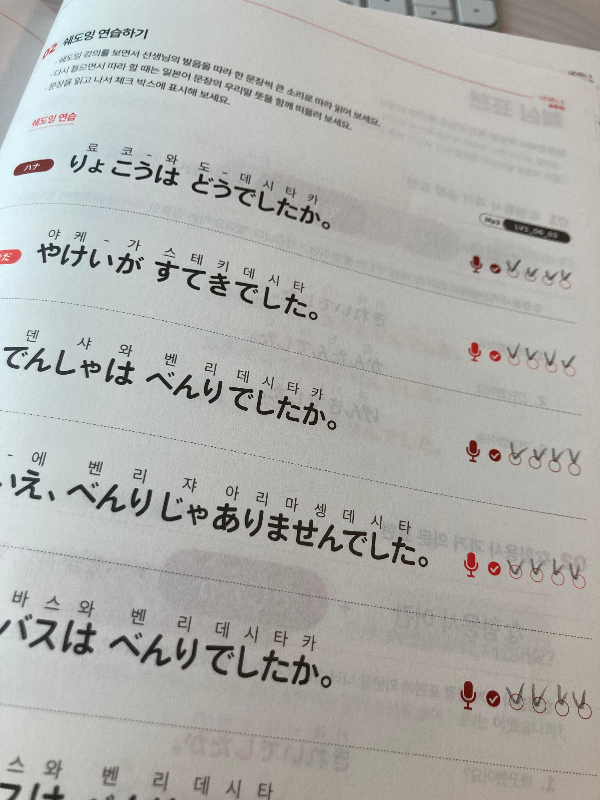 02 쉐도잉 연습하기
· 쉐도잉 강의를 보면서 선생님의 발음을 따라 한 문장씩 큰 소리로 따라 읽어 보세요.
· 다시 들으면서 따라 할 때는 일본어 문장의 우리말 뜻을 함께 떠올려 보세요.
· 문장을 읽고 나서 체크 박스에 표시해 보세요.
쉐도잉 연습
MP3
료 코 - 와 도 - 데 시 타 카
ハナ りょこうは どうでしたか。
야 케 - 가 스 테 키 데 시 타
だ やけいが すてきでした。
덴 샤 와 벤 리 데 시 타 카
でんしゃは べんりでしたか。
- 에 벤 리 쟈 아 리 마 셍 데 시 타
いえ、べんりじゃありませんでした。
바 스 와 벤 리 데 시 타 카
バスは べんりでしたか。
스 와 벤 리 데 시 타